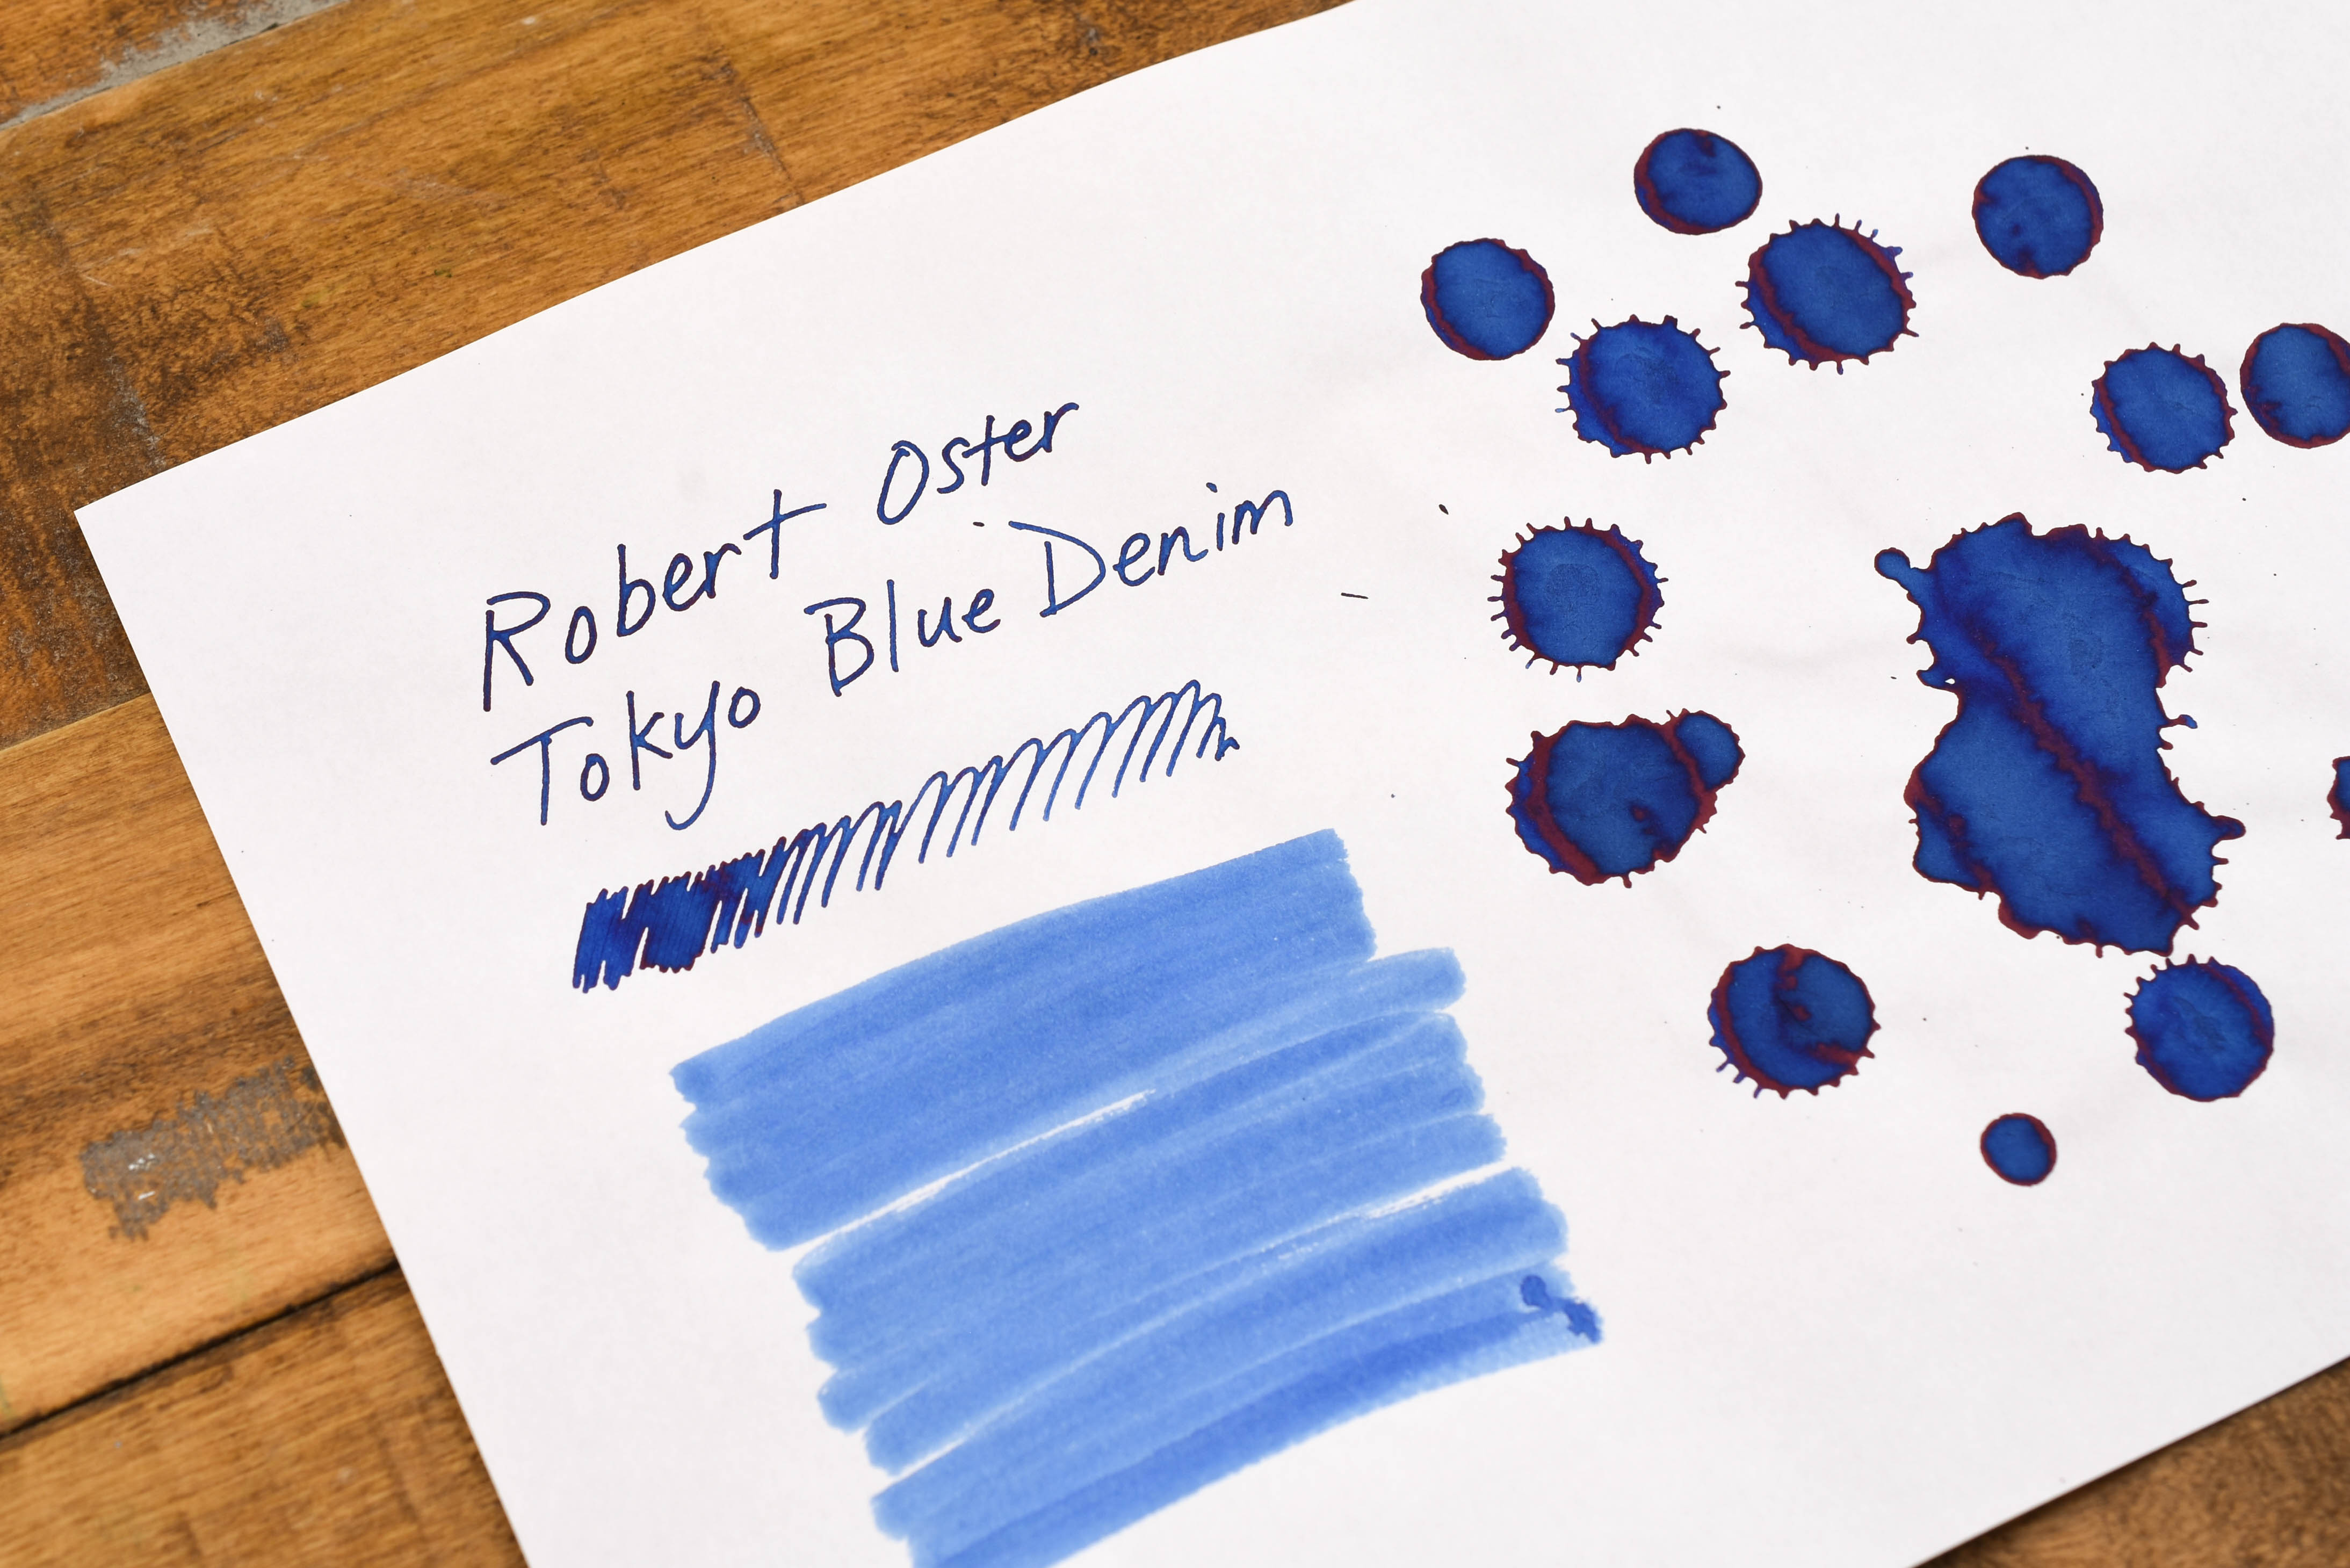 Robert Oster
Tokyo Blue Denim